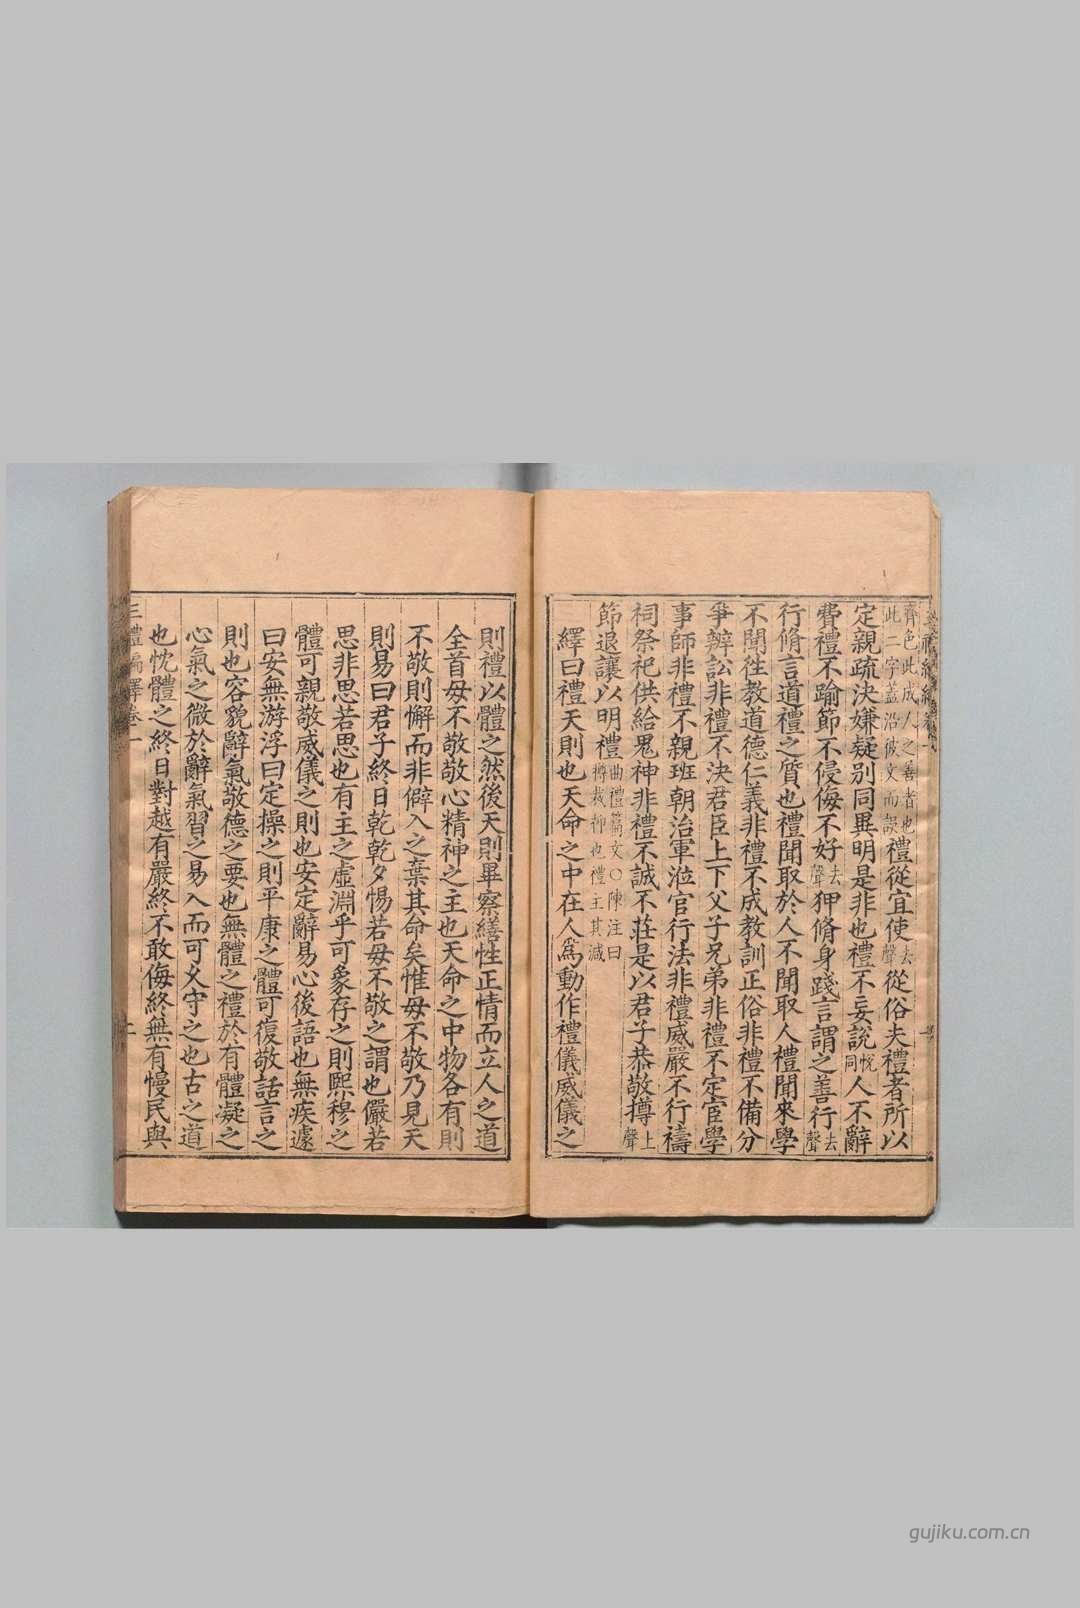 齊色此成人之善者也
此二字蓋沿彼文而誤禮從宜使去聲從俗夫禮者所以
定親疏決嫌疑別同異明是非也禮不妄說悅同人不辭
費禮不踰節不侵侮不好去聲狎脩身踐言謂之善行去聲
行脩言道禮之質也禮聞取於人不聞取人禮聞來學
不聞徃教道德仁義非禮不成教訓正俗非禮不備分
爭辨訟非禮不決君臣上下父子兄弟非禮不定宦學
事師非禮不親班朝治軍涖官行法非禮威嚴不行禱
祠祭祀供給鬼神非禮不誠不莊是以君子恭敬撙上聲
節退讓以明禮曲禮篇文○陳注曰撙裁抑也禮主其減
繹曰禮天則也天命之中在人為動作禮儀威儀之
則禮以體之然後天則畢察繕性正情而立人之道
全首毋不敬敬心精神之主也天命之中物各有則
不敬則懈而非僻入之棄其命矣惟毋不敬乃見天
則易曰君子終日乾乾夕惕若毋不敬之謂也儼若
思非思若思也有主之虛淵乎可象存之則熙穆之
體可親敬威儀之則也安定辭易心後語也無疾遽
曰安無游浮曰定操之則平康之體可復敬話言之
則也容貌辭氣敬德之要也無體之禮於有體凝之
心氣之微於辭氣習之易入而可久守之也古之道
也忱體之終日對越有嚴終不敢侮終無有慢民與
三禮編繹卷一